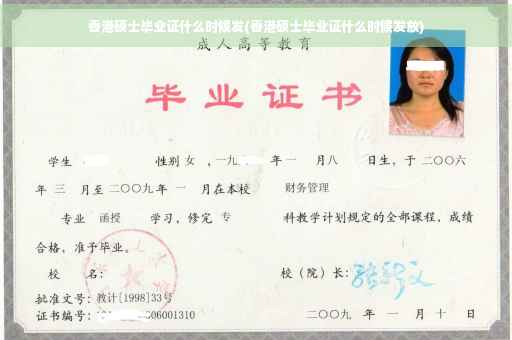 香港硕士毕业证什么时候发(香港硕士毕业证什么时候发放)
成人高等教育
毕业证书
学生 性别 女 ,一九 年 一 月八 日生，于 二〇〇六
年 三 月至 二〇〇九 年 一 月在本校 财务管理
专业 函授 学习，修完 专 科教学计划规定的全部课程，成绩
合格，准予毕业。
校 名： 校（院）长：
批准文号：教计[1998]33号
证书编号： 06001310 二〇〇九 年 一 月 十 日